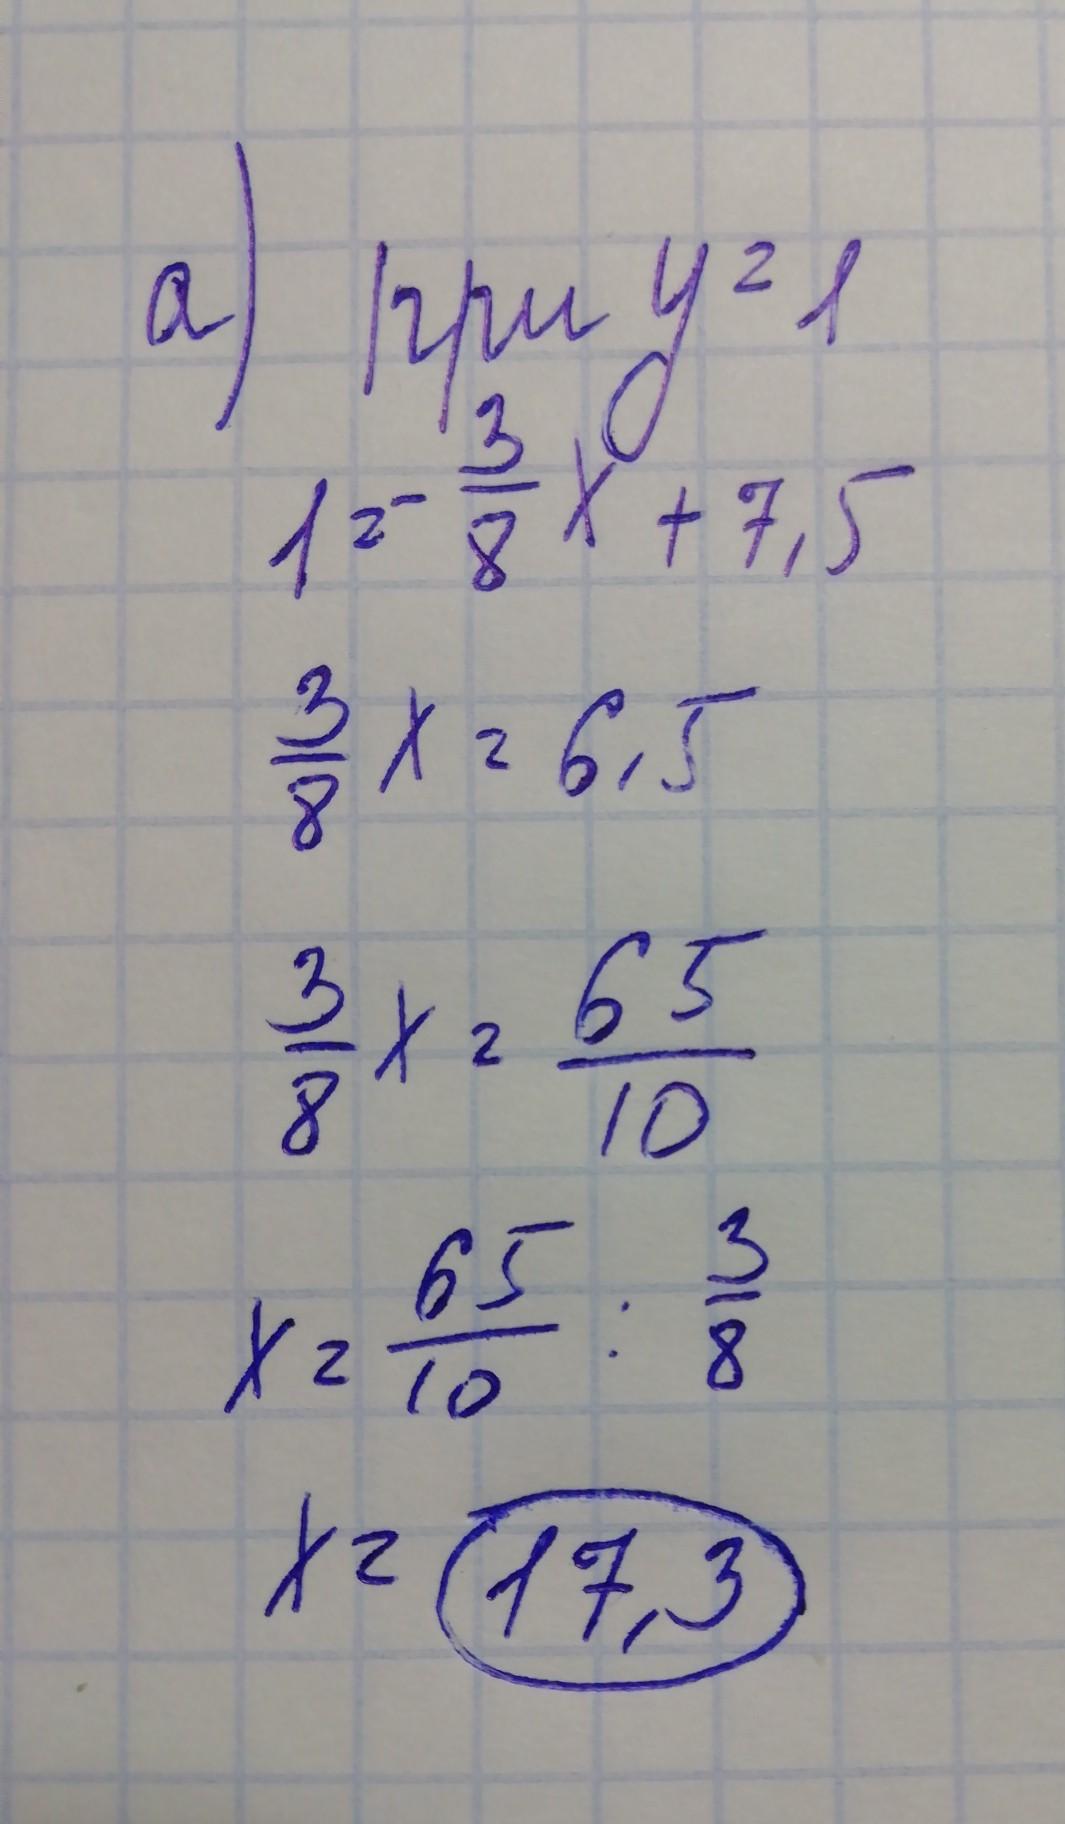 а) при y = 1
1 = - 3/8 x + 7,5
3/8 x = 6,5
3/8 x = 65/10
x = 65/10 : 3/8
x = 17,3